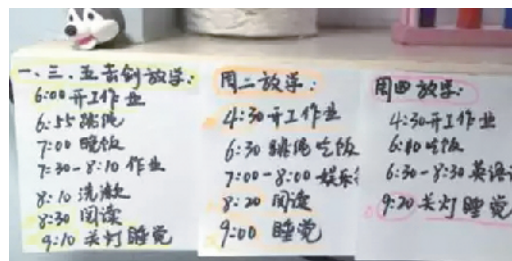 一、三、五击剑放学:
6:00 开工作业
6:55 跳绳
7:00 晚饭
7:30-8:10 作业
8:10 洗漱
8:30 阅读
9:10 关灯睡觉
周二放学:
4:30 开工作业
6:30 跳绳吃饭
7:00-8:00 娱乐
8:20 阅读
9:00 睡觉
周四放学:
4:30 开工作业
6:10 吃饭
6:30-8:30 英语
9:20 关灯睡觉